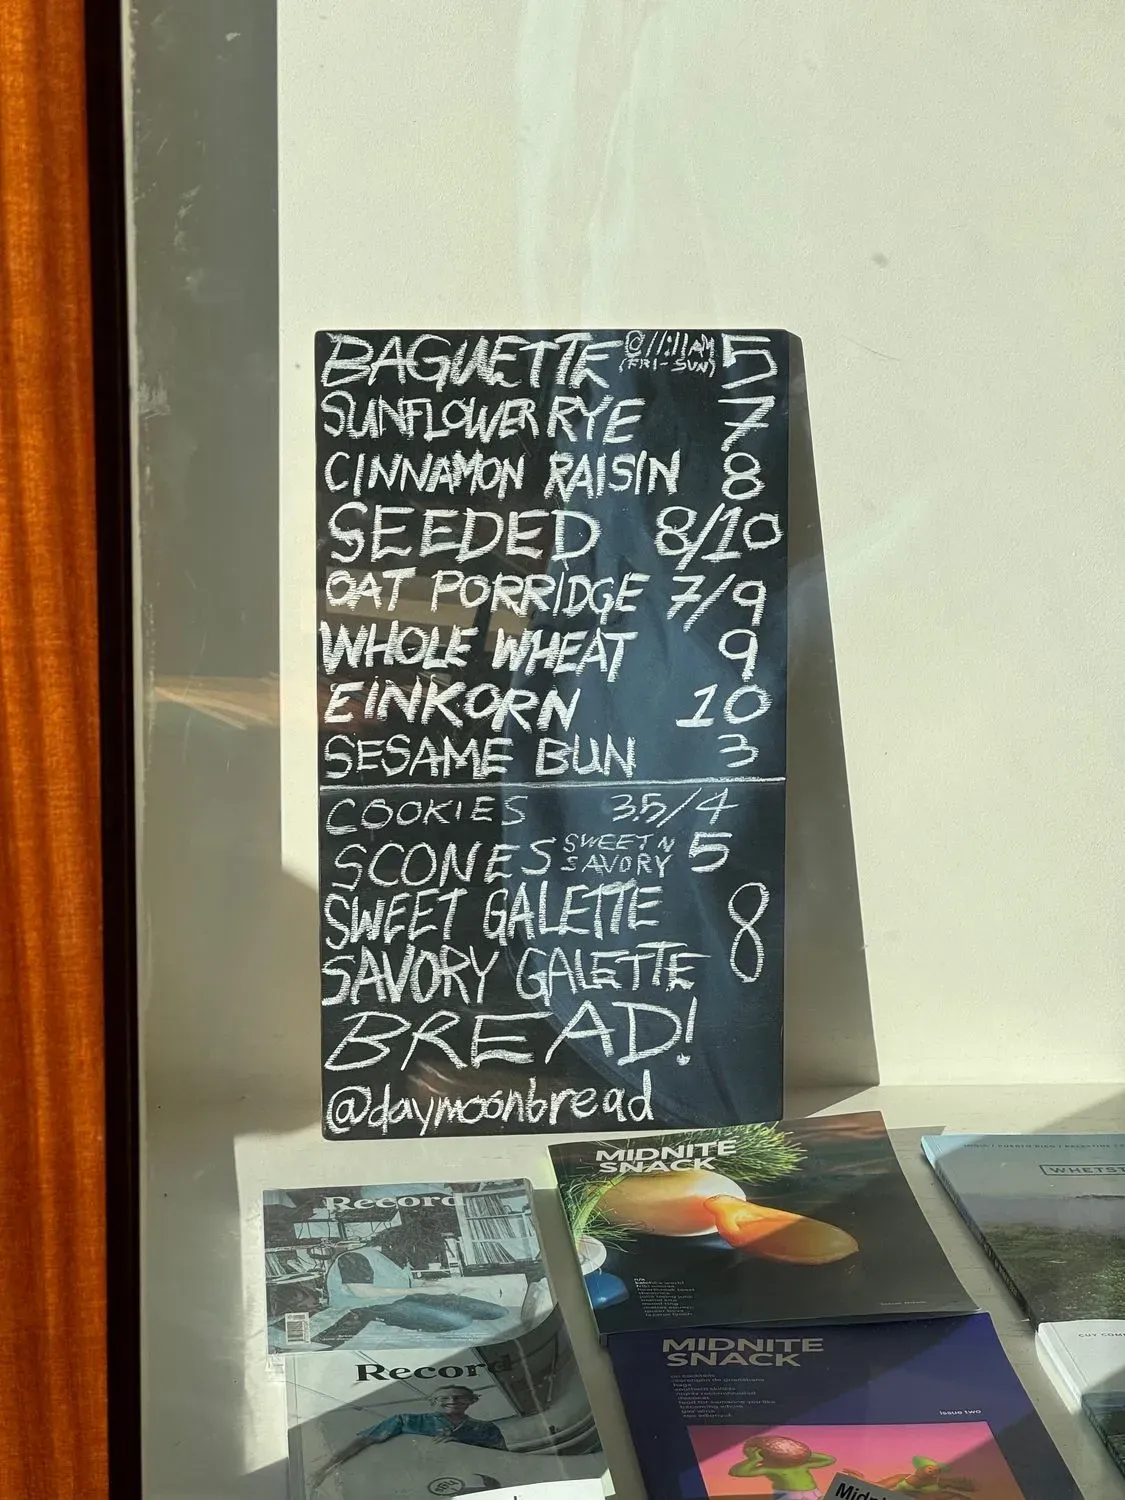 BAGUETTE @11:11AM (FRI-SUN) 5
SUNFLOWER RYE 7
CINNAMON RAISIN 8
SEEDED 8/10
OAT PORRIDGE 7/9
WHOLE WHEAT 9
EINKORN 10
SESAME BUN 3
COOKIES 3.5/4
SCONES SWEET N SAVORY 5
SWEET GALETTE
SAVORY GALETTE 8
BREAD!
@daymoonbread
Record
MIDNITE
SNACK
Record
MIDNITE
SNACK
issue two